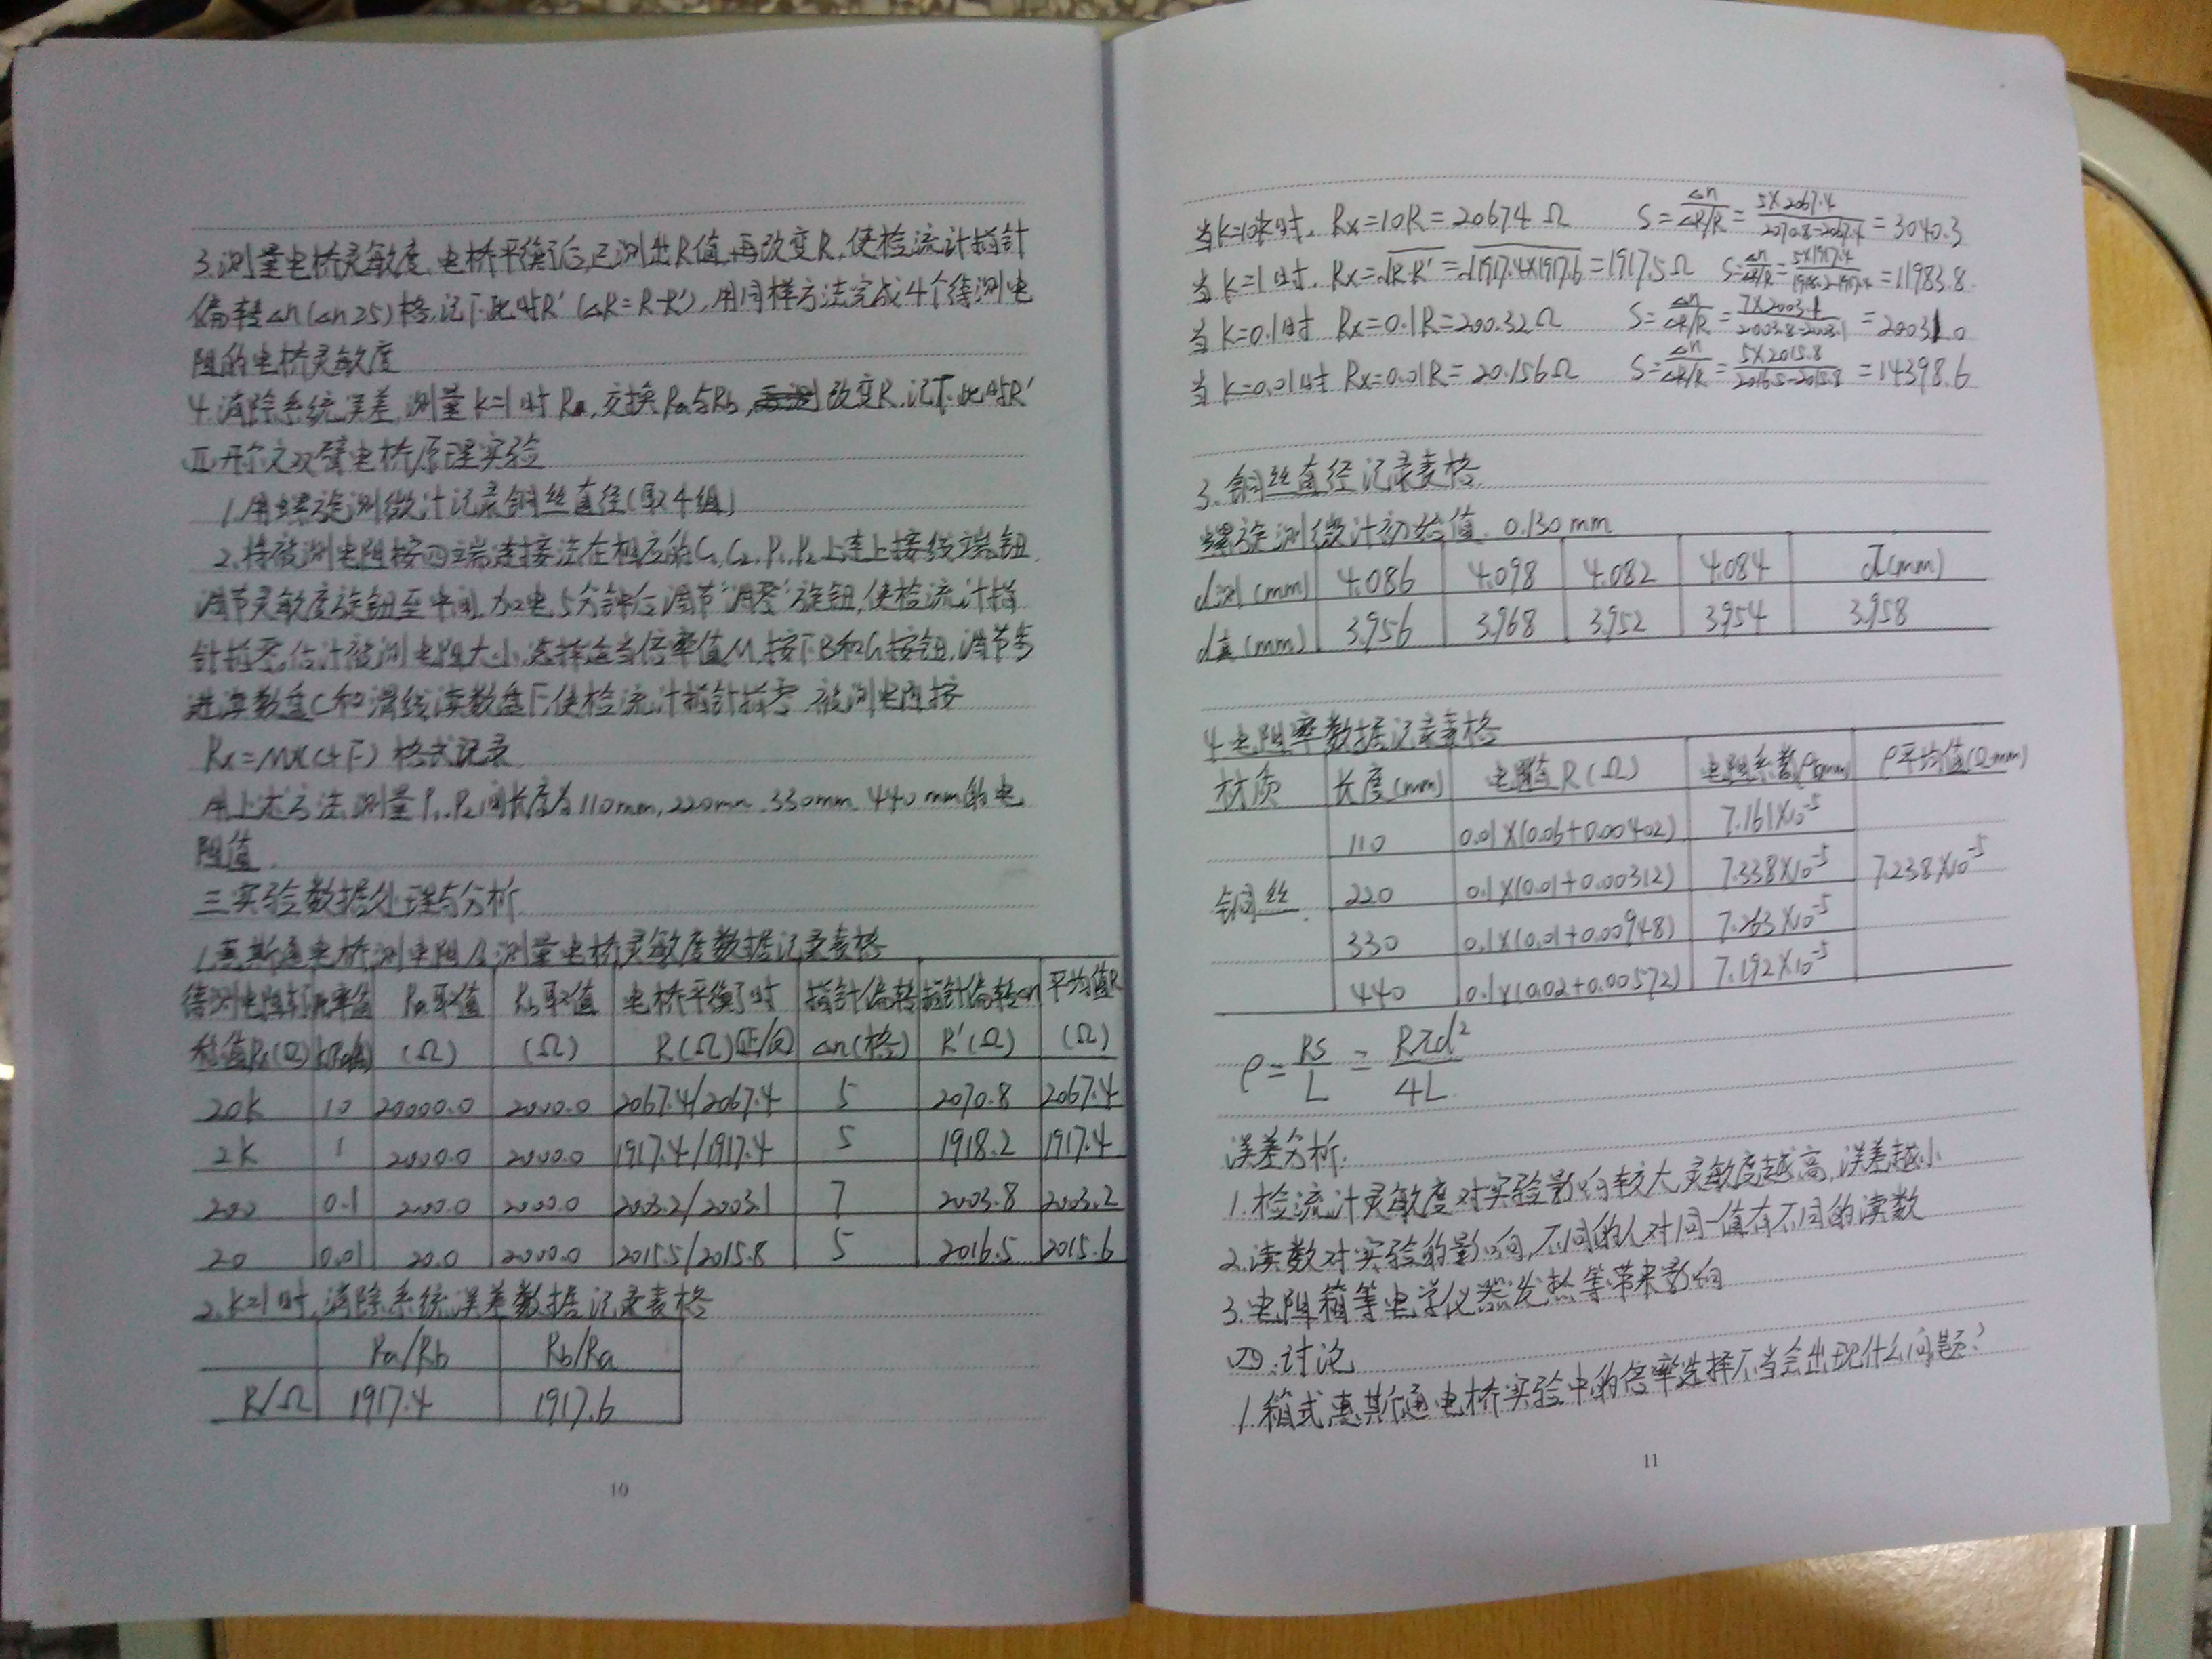 3.测量电桥灵敏度,电桥平衡后,已测出R值,再改变R,使检流计指针
偏转Δn(Δn≥5)格,记下此时R'(ΔR=R-R'),用同样方法完成4个待测电
阻的电桥灵敏度
4.消除系统误差,测量K=1时Ra,交换Ra与Rb,改变R,记下此时R'
Ⅱ.开尔文双臂电桥原理实验
1.用螺旋测微计记录铜丝直径(取4组)
2.将被测电阻按四端连接法在相应的C1,C2,P1,P2上连上接线端钮,
调节灵敏度旋钮至中间,加电5分钟后调节"调零"旋钮,使检流计指
针指零,估计被测电阻大小,选择适当倍率值M,按下B和G按钮,调节步
进读数盘C和滑线读数盘F,使检流计指针指零,被测电阻按
Rx=M×(C+F) 格式记录
用上述方法,测量P1,P2间长度为110mm,220mm,330mm,440mm的电
阻值.
三.实验数据处理与分析
1.惠斯通电桥测电阻及测量电桥灵敏度数据记录表格
待测电阻标 比率值 Ra取值 Rb取值 电桥平衡时 指针偏转 指针偏转Δn 平均值R
称值Rx(Ω) (Ω) (Ω) R(Ω)(正/反) Δn(格) R'(Ω) (Ω)
20K 10 20000.0 2000.0 2067.4/2067.4 5 2070.8 2067.4
2K 1 2000.0 2000.0 1917.4/1917.4 5 1918.2 1917.4
200 0.1 200.0 2000.0 2003.2/2003.1 7 2003.8 2003.2
20 0.01 20.0 2000.0 2015.5/2015.8 5 2016.5 2015.6
2.K=1时,消除系统误差数据记录表格
Ra/Rb Rb/Ra
R/Ω 1917.4 1917.6
10
当K=10时, Rx=10R=20674Ω S=Δn/(ΔR/R)=5×2067.4/(2070.8-2067.4)=3040.3
当K=1时, Rx=√(R·R')=√(1917.4×1917.6)=1917.5Ω S=Δn/(ΔR/R)=5×1917.4/(1918.2-1917.4)=11983.8
当K=0.1时 Rx=0.1R=200.32Ω S=Δn/(ΔR/R)=7×2003.1/(2003.8-2003.1)=20031.0
当K=0.01时 Rx=0.01R=20.156Ω S=Δn/(ΔR/R)=5×2015.8/(2016.5-2015.8)=14398.6
3.铜丝直径记录表格
螺旋测微计初始值:0.130mm
d测(mm) 4.086 4.098 4.082 4.084 d̄(mm)
d真(mm) 3.956 3.968 3.952 3.954 3.958
4.电阻率数据记录表格
材质 长度(mm) 电阻值R(Ω) 电阻系数ρ(Ωmm) ρ平均值(Ωmm)
110 0.01×(0.06+0.00402) 7.161×10⁻⁵
铜丝 220 0.1×(0.01+0.00312) 7.338×10⁻⁵ 7.238×10⁻⁵
330 0.1×(0.01+0.00948) 7.263×10⁻⁵
440 0.1×(0.02+0.00572) 7.192×10⁻⁵
ρ=RS/L=Rπd²/4L
误差分析:
1.检流计灵敏度对实验影响较大,灵敏度越高,误差越小
2.读数对实验的影响,不同的人对同一值有不同的读数
3.电阻箱等电学仪器发热等带来影响
四.讨论
1.箱式惠斯通电桥实验中的倍率选择不当会出现什么问题?
11